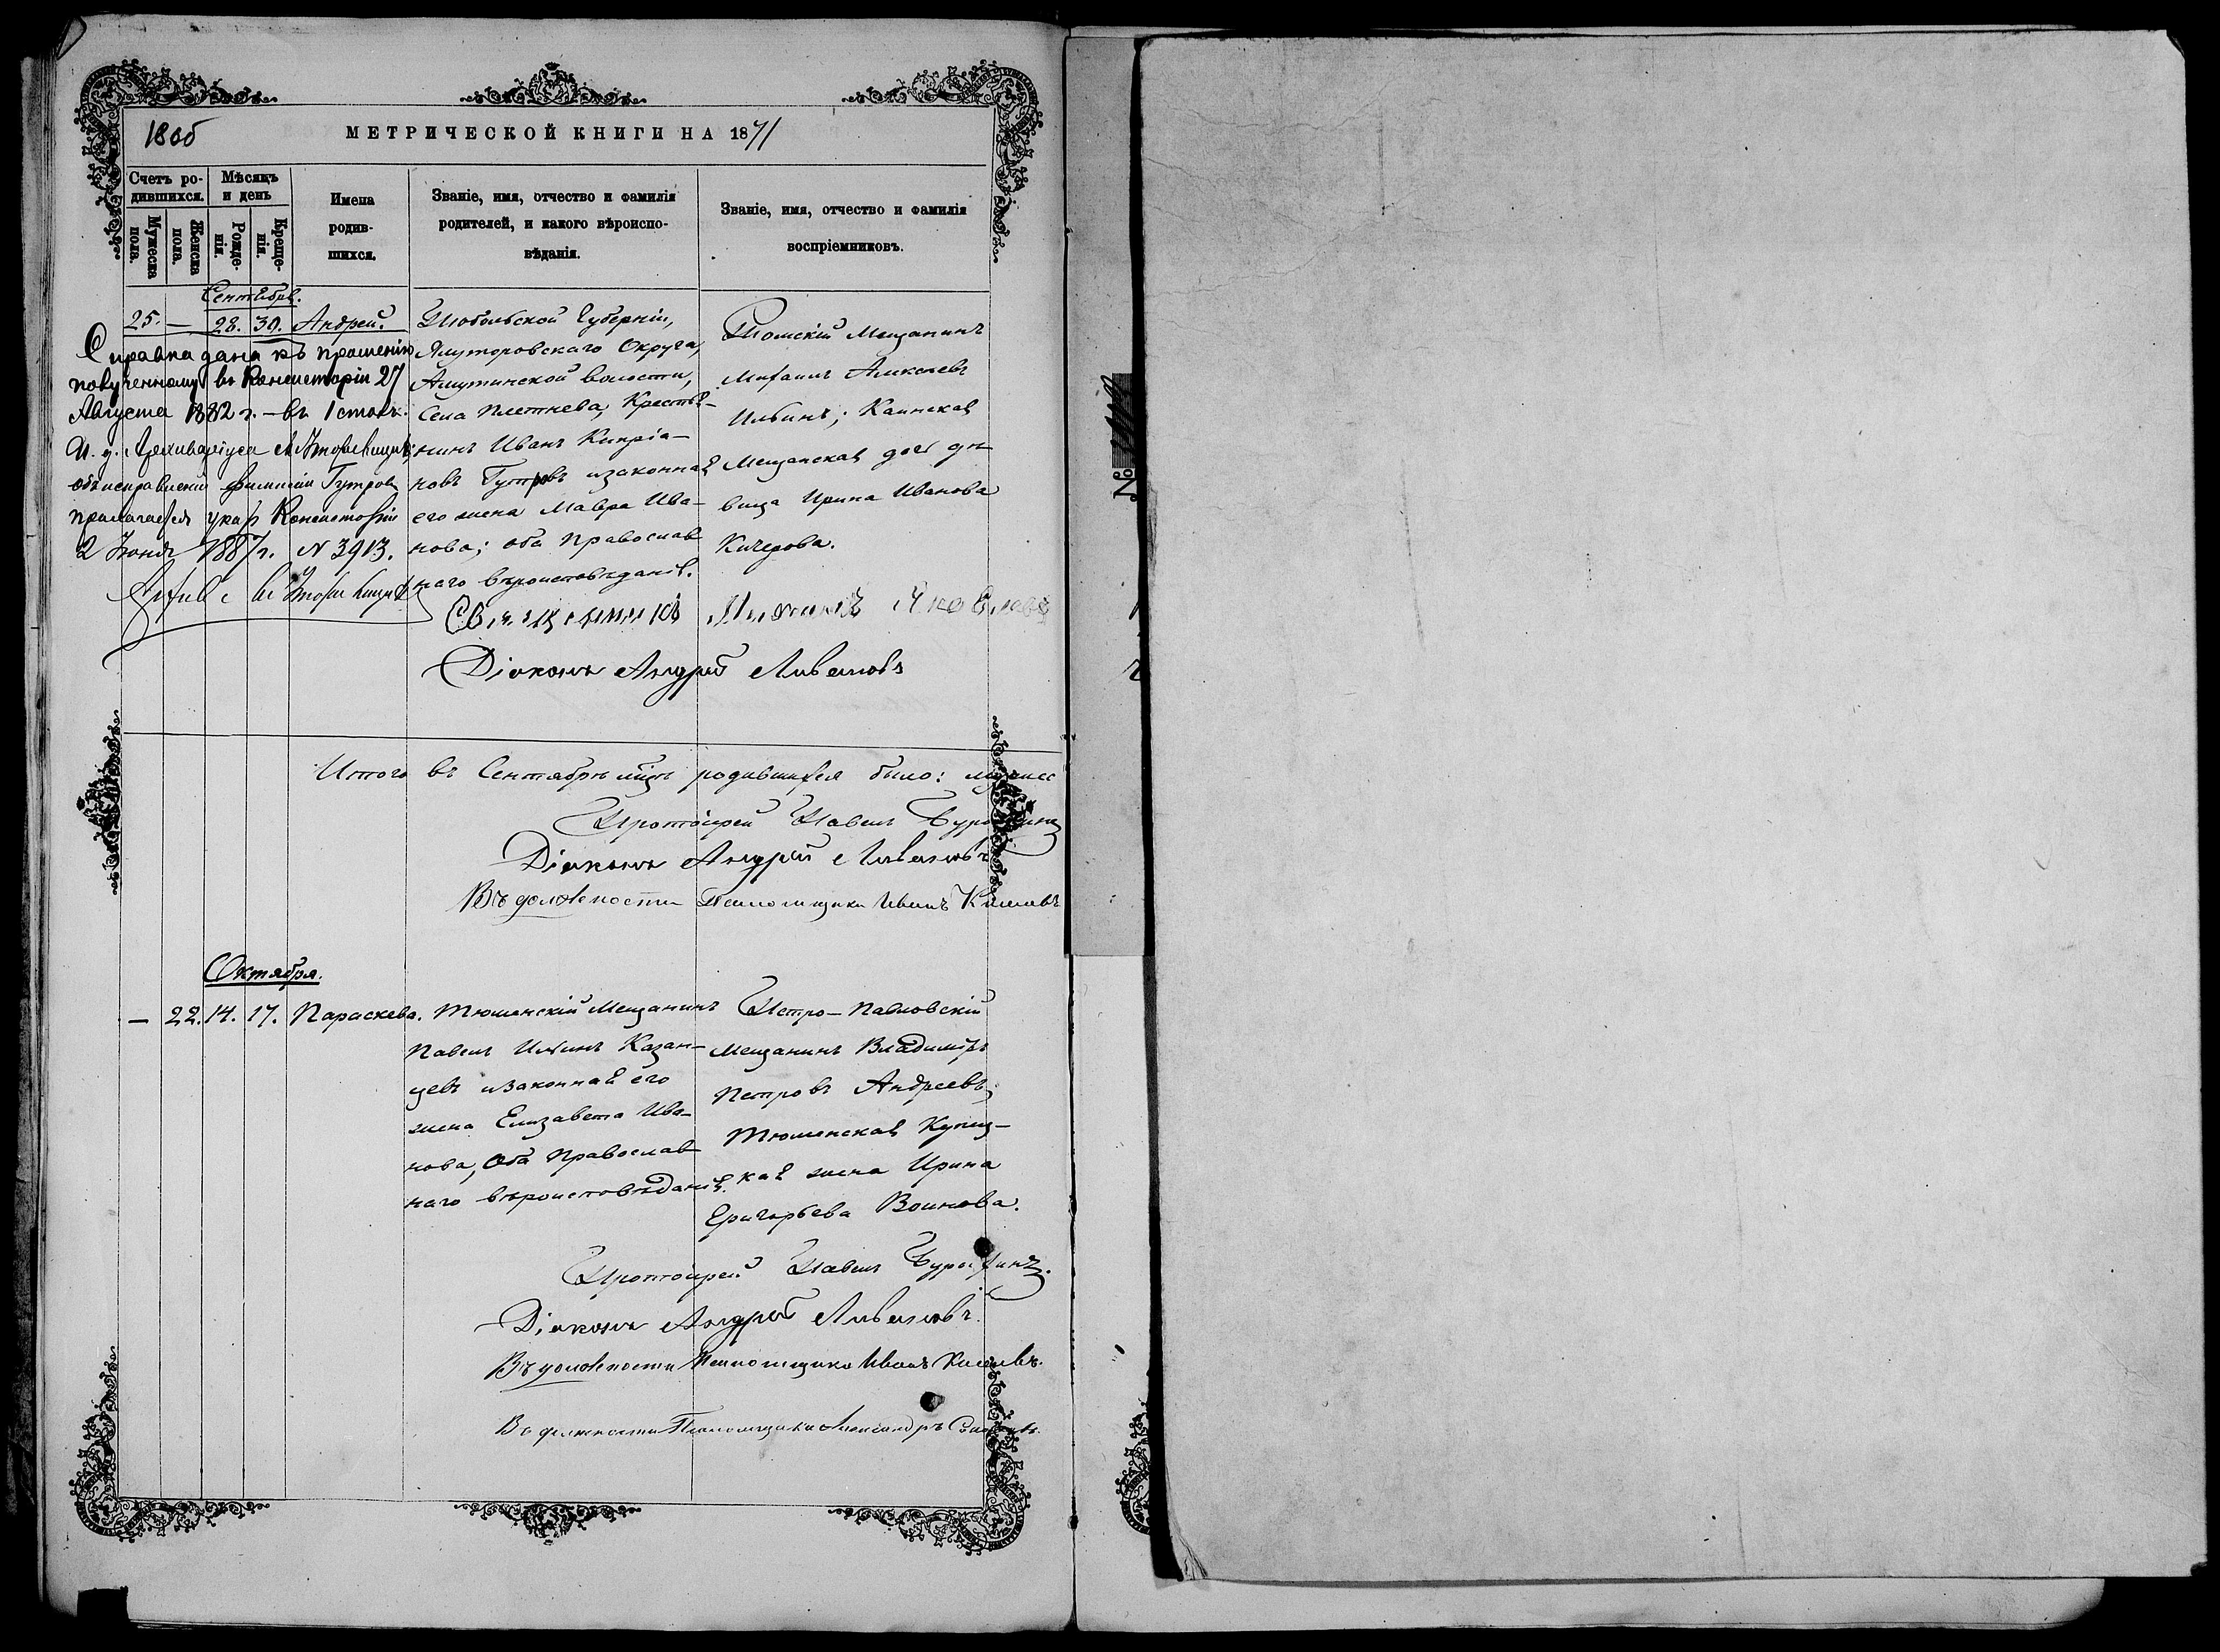 МЕТРИЧЕСКОЙ КНИГИ НА 1871
Счетъ ро-
дившихся.
Мѣсяцъ
и день
Мужеска
пола.
Женска
пола.
Рожде-
нія.
Креще-
нія.
Имена
родив-
шихся.
Званіе, имя, отчество и фамилія
родителей, и какого вѣроиспо-
вѣданія.
Званіе, имя, отчество и фамилія
воспріемниковъ.
Сентября.
25. — 28. 30. Андрей.
Тобольской Губерніи,
Ялуторовскаго Округа,
Амутинской волости,
Села Плетнева, Крестья-
нинъ Иванъ Кипріа-
новъ Гутровъ и законная
его жена Мавра Ива-
нова; оба Православ
наго вѣроисповѣданія.
Томскій Мещанинъ
Михаилъ Алексѣевъ
Ильинъ; Каинская
Мещанская дочь дѣ-
вица Ирина Иванова
Кичерова.
Справка дана къ прошенію
полученному въ Консисторіи 27
Августа 1882 г. — въ 1 столъ.
И. д. Архиваріуса
объ исправленіи фамиліи Гутровъ
прилагается указъ Консисторіи
2 Іюня 1887 г. № 3913.
Священникъ Михаилъ Яковлевъ
Діаконъ Андрей Ливановъ
Итого въ Сентябрѣ мцѣ родившихся было: мужес
Протоіерей Павелъ
Діаконъ Андрей Ливановъ
Въ должности Псаломщика Иванъ
Октября.
— 22. 14. 17. Параскева.
Тюменскій Мещанинъ
Павелъ Ильинъ Казан-
цевъ и законная его
жена Елизавета Ива-
нова, оба Православ
наго вѣроисповѣданія.
Петро-Павловскій
Мещанинъ Владиміръ
Петровъ Андреевъ;
Тюменская Купец-
кая жена Ирина
Григорьева Воинова.
Протоіерей Павелъ
Діаконъ Андрей Ливановъ.
Въ должности Псаломщика Иванъ
Въ должности Псаломщика Александръ